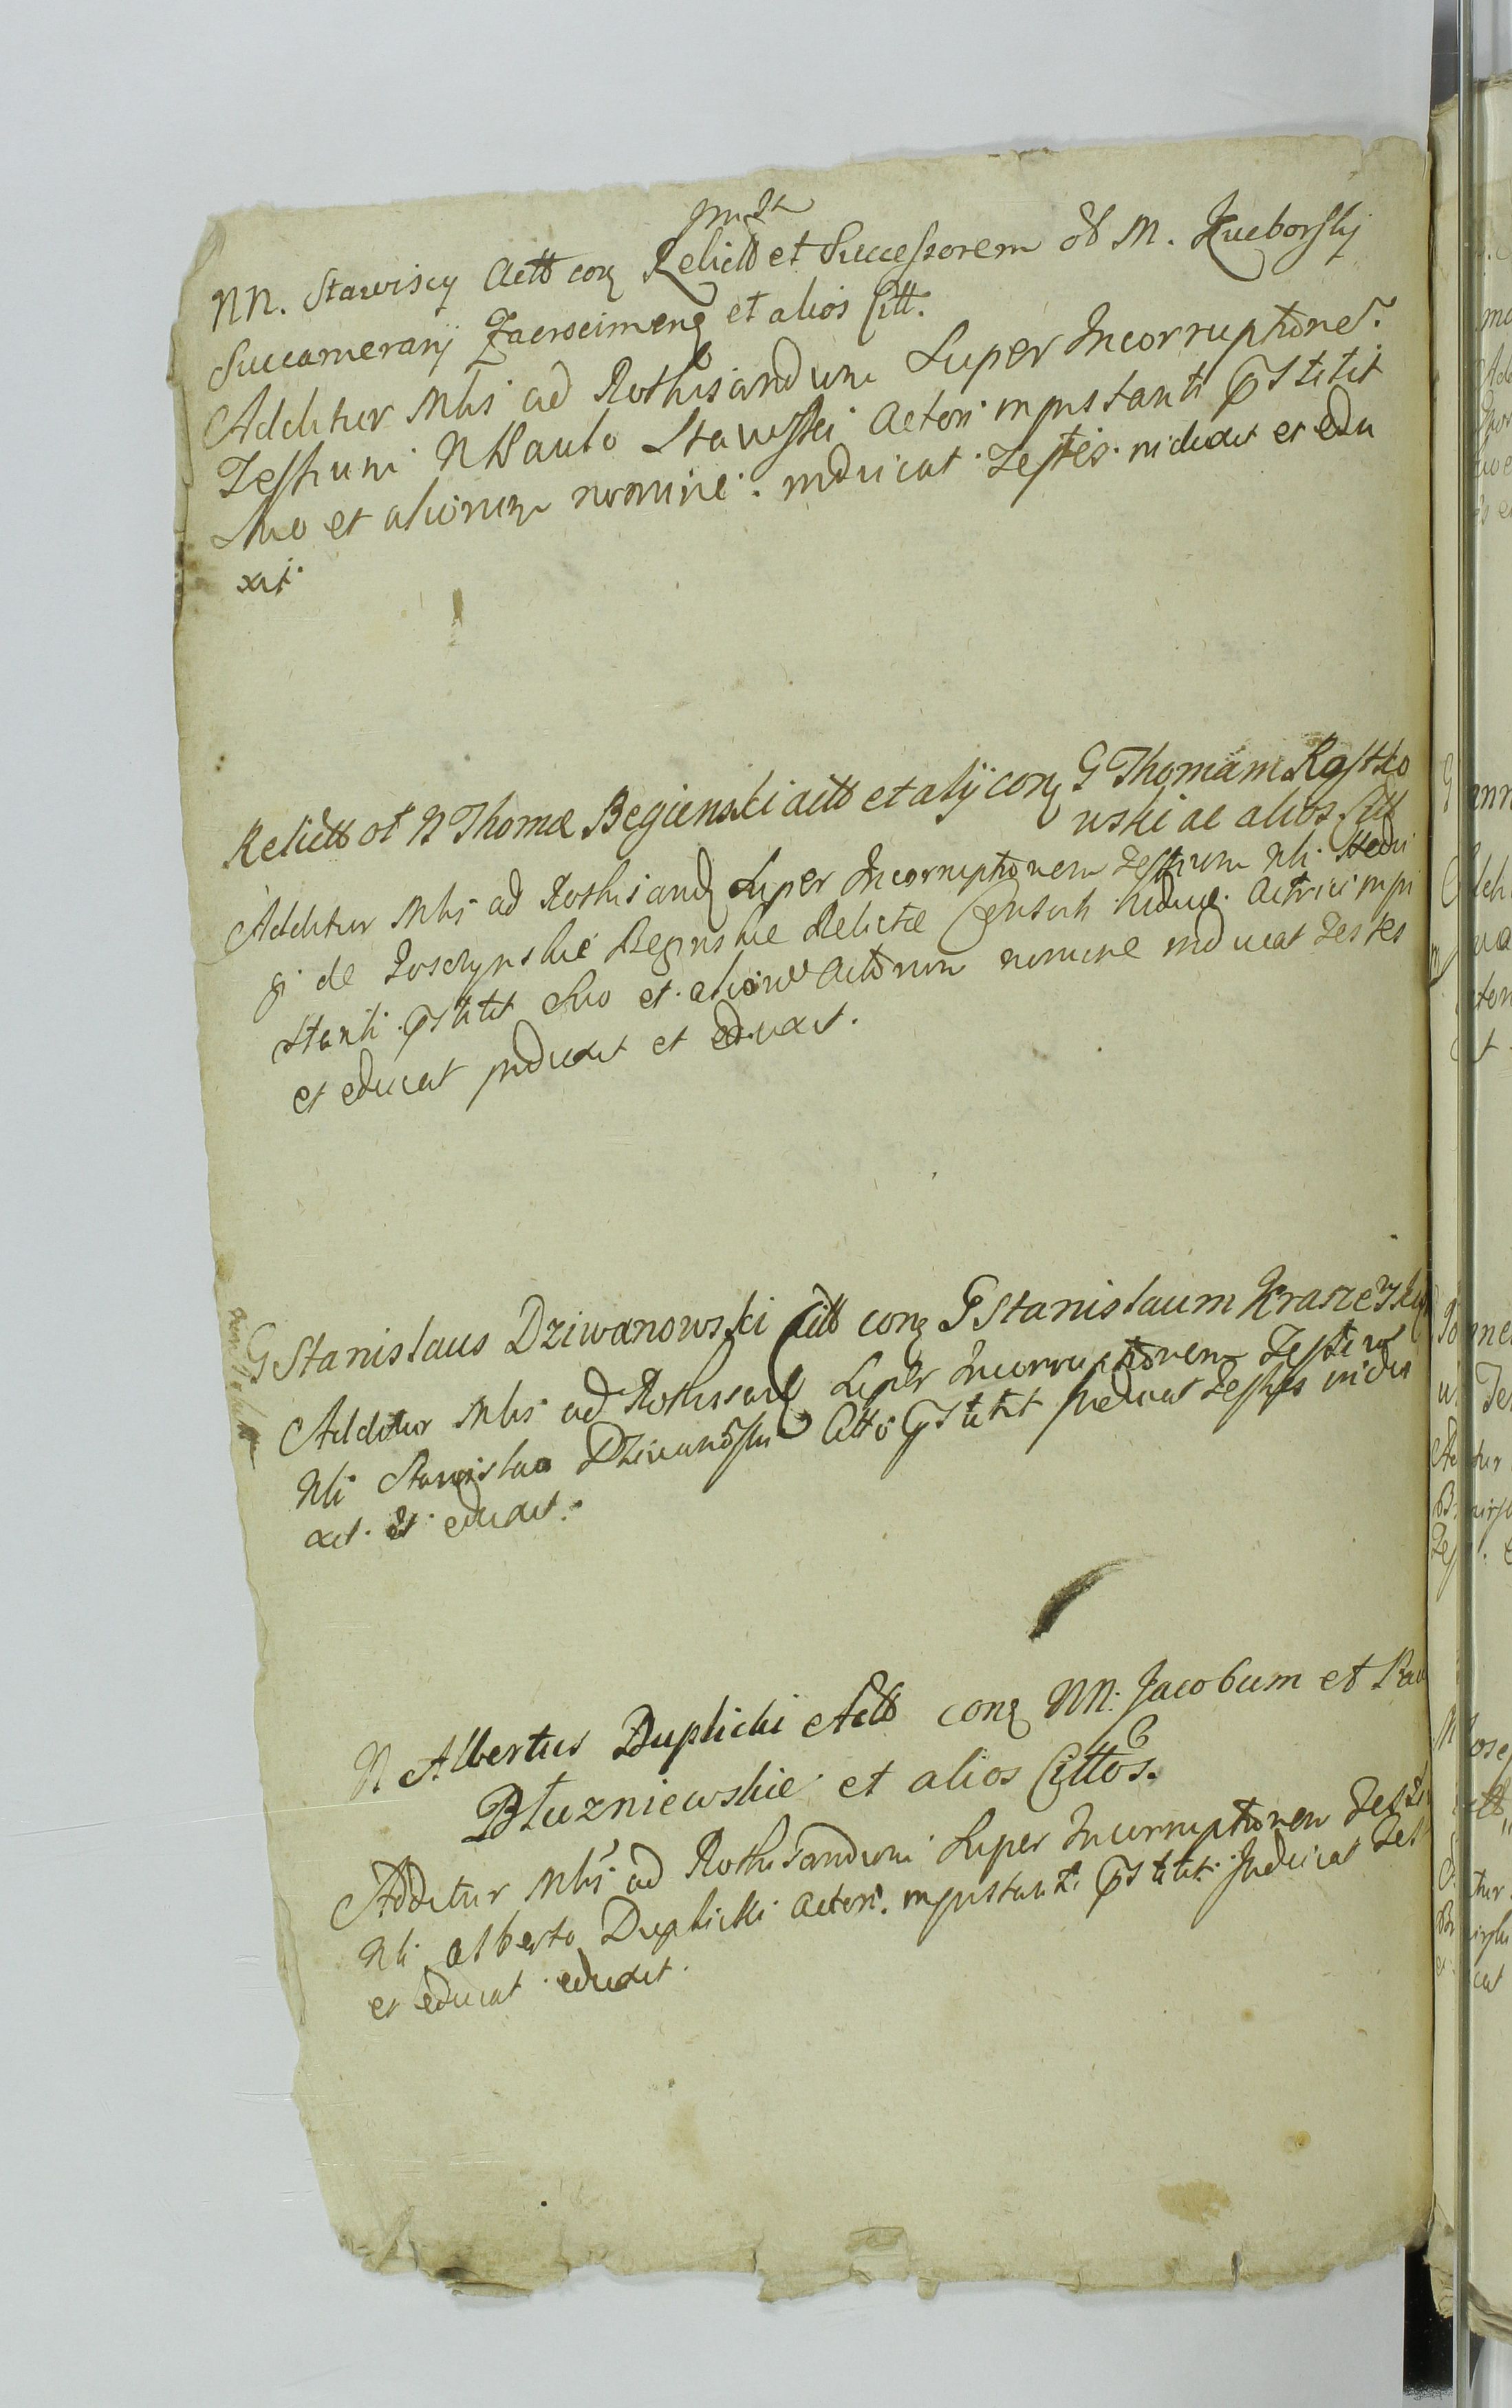 NN. Stawiscy Actt conz Relictt et Successorem ol M. Kucborskj
Succamerarij Zacrocimenz et alios Citt.
Additur Mlis ad Rothisandum Super Incorruptione
Testium N Paulo Stawski Actori in instanti statit
Suo et aliorum nomine. inducat Testes. induxit et edu
xit.
Relictt ol N Thomæ Begienski actt et alij conz G Thomam Rostko
wski ac alios Citt
Additur Mlis ad Rothisandz Super Incorruptionem Testium Nli
de Begienskie Relictæ Actrici in in
stanti statit Suo et aliorum Actorum nomine inducat Testes
et educat induxit et eduxit.
G Stanislaus Dziwanowski Citt conz G Stanislaum Kraszewski
Additur Mlis ad Rothisandz Super Incorruptionem Testium
Nli Stanislao Dziwanoski Citto statit Inducat Testes indu
xit et eduxit.
N Albertus Duplicki Actt conz NN. Jacobum et Pau
Błuzniewskie et alios Cittos.
Additur Mlis ad Rothisandum Super Incorruptionem Testiu
Nli Alberto Duplicki Actori. in instanti statit. Inducat Tes
et educat eduxit.